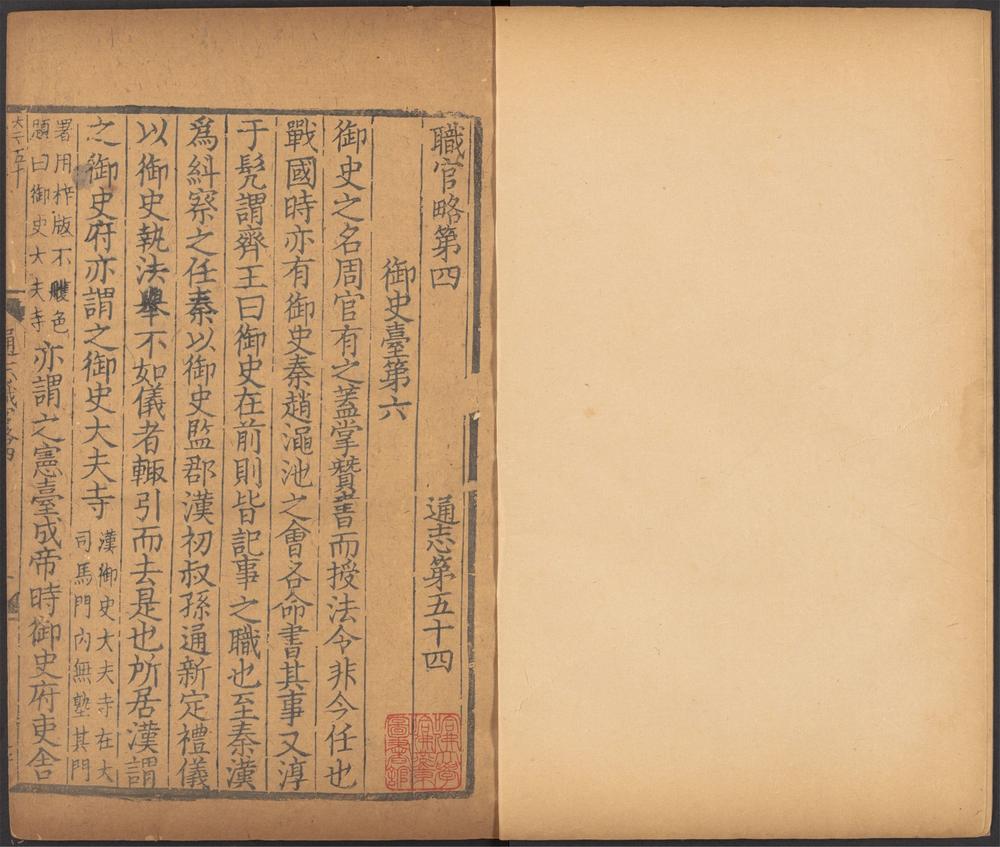 職官略第四 通志第五十四
御史臺第六
御史之名周官有之蓋掌贊書而授法令非今任也
戰國時亦有御史秦趙澠池之會各命書其事又淳
于髠謂齊王曰御史在前則皆記事之職也至秦漢
爲糾察之任秦以御史監郡漢初叔孫通新定禮儀
以御史執法舉不如儀者輙引而去是也所居漢謂
之御史府亦謂之御史大夫寺
漢御史大夫寺在大
司馬門內無塾其門
署用梓版不雘色
題曰御史大夫寺
亦謂之憲臺成帝時御史府吏舍
哈佛大學
哈佛燕京
圖書館